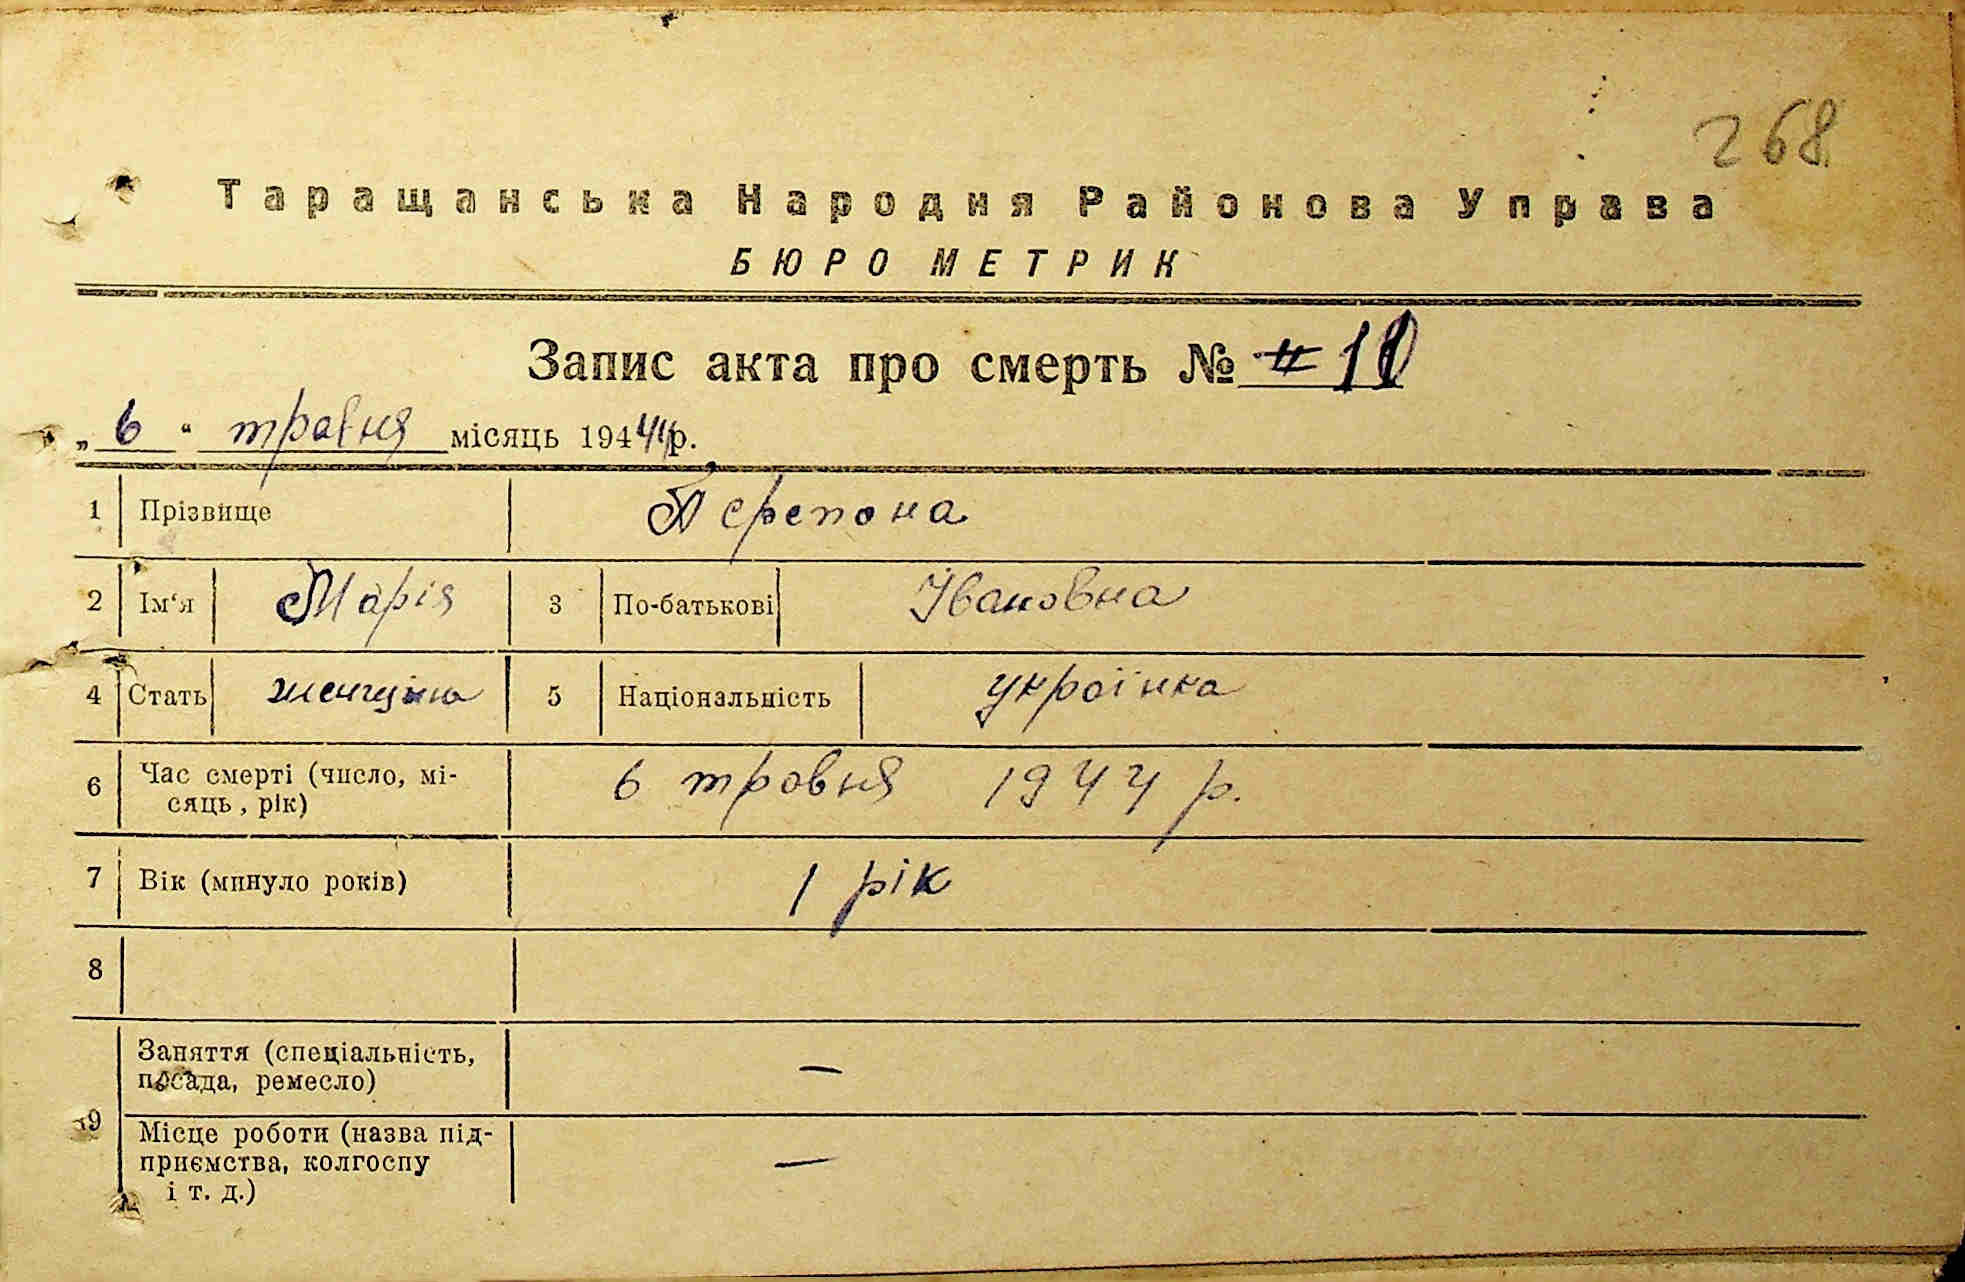 268
Таращанська Народня Районова Управа
БЮРО МЕТРИК
Запис акта про смерть №
„6“ травня місяць 194 44 р.
1 Прізвище Перепона
2 Ім‘я Марія 3 По-батькові Івановна
4 Стать женщіна 5 Національність українка
6 Час смерті (число, мі-
сяць, рік) 6 травня 1944 р.
7 Вік (минуло років) 1 рік
8
Заняття (спеціальність,
посада, ремесло) —
9
Місце роботи (назва під-
приємства, колгоспу —
і т. д.)